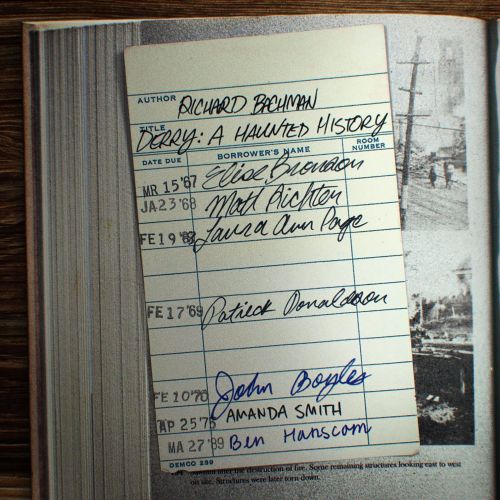 AUTHOR RICHARD BACHMAN
TITLE DERRY: A HAUNTED HISTORY
DATE DUE BORROWER'S NAME ROOM NUMBER
MR 15 '67 Elise Brondon
JA 23 '68 Matt Richter
FE 19 '68 Laura Ann Page
FE 17 '69 Patrick Donaldson
FE 10 '70 John Boyles
AP 25 '75 AMANDA SMITH
MA 27 '89 Ben Hanscom
DEMCO 299
after the destruction of fire. Some remaining structures looking east to west
on site. Structures were later torn down.